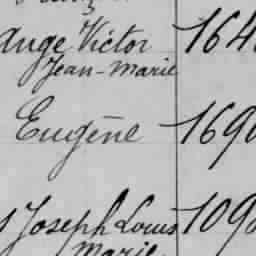 Ange Victor 164
Jean-Marie
Eugène 169
Joseph Louis 109
Marie